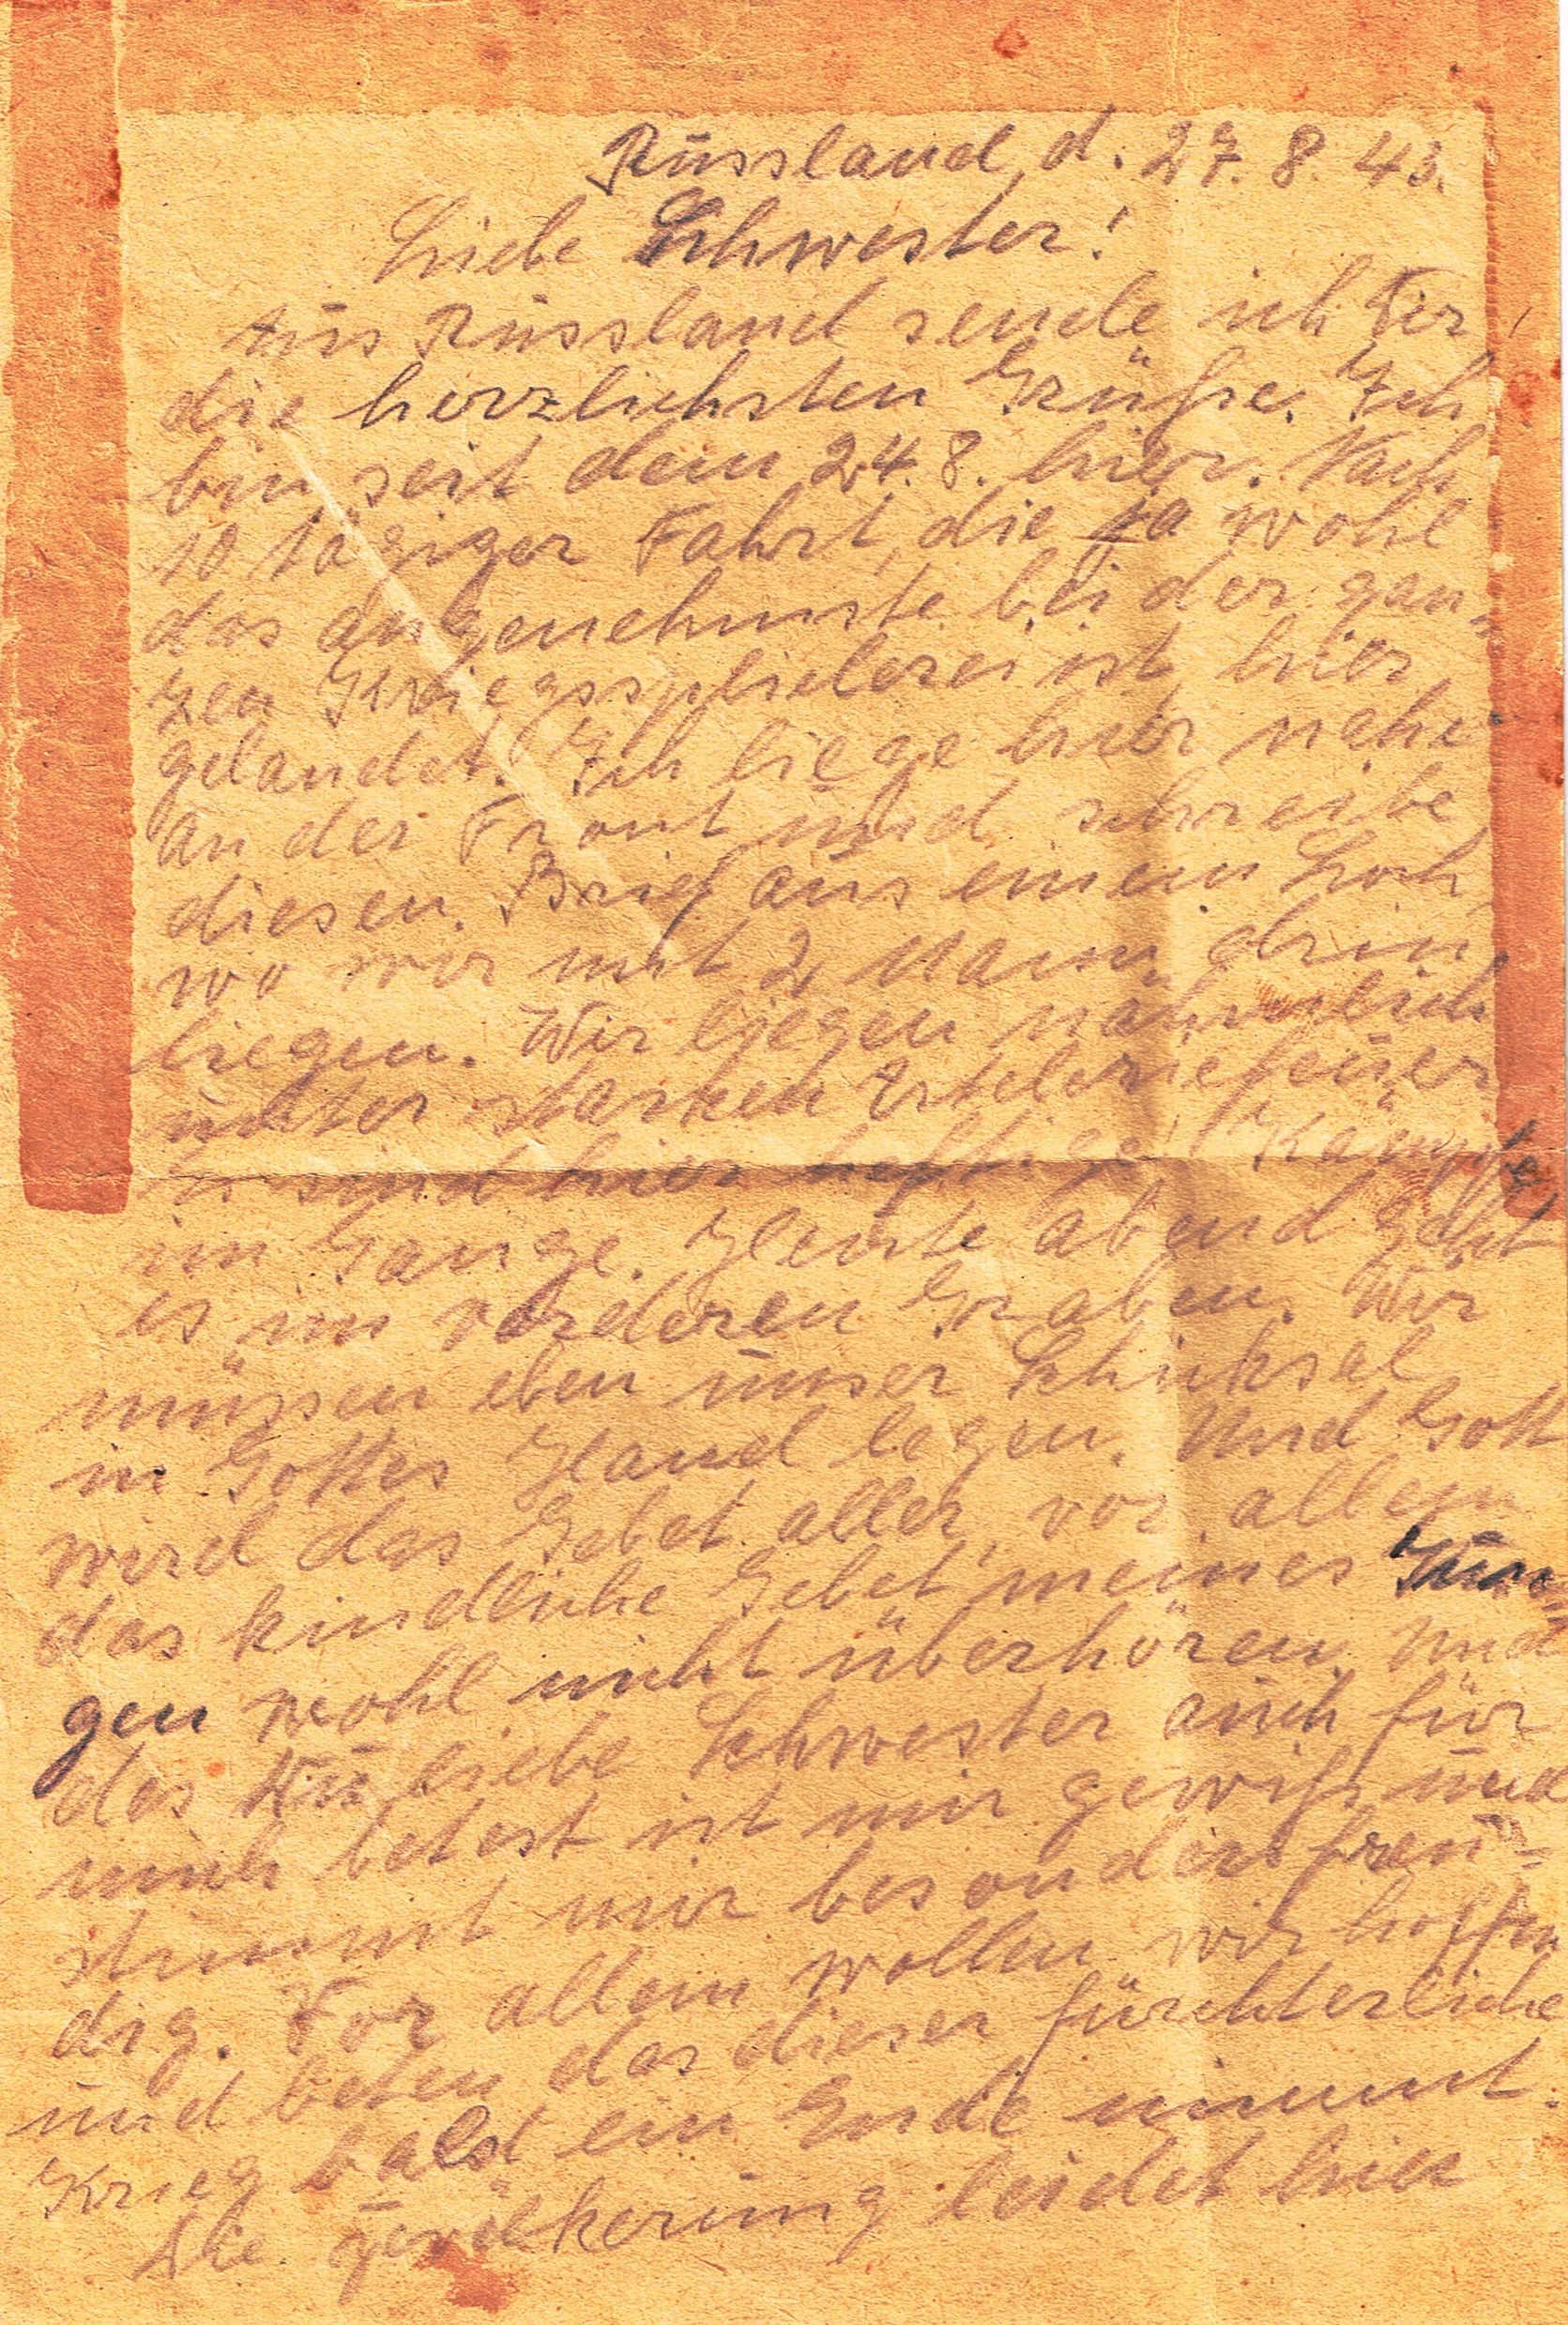 Russland, d. 27.8.43.
Liebe Schwester!
Aus Russland sende ich Dir
die herzlichsten Grüße. Ich
bin seit dem 24.8. hier. Nach
10 tägiger Fahrt, die ja wohl
das angenehmste bei der gan-
zen Kriegsspielerei ist hier
gelandet. Ich liege hier nahe
an der Front und schreibe
diesen Brief aus einem Loch,
wo wir mit 2 Mann drin
liegen. Wir liegen
unter starken
Es sind hier heftige Kämpfe
im Gange. Heute abend geht
es im vorderen Graben. Wir
müssen eben unser Schicksal
in Gottes Hand legen. Und Gott
wird das Gebet aller, vor allem
das kindliche Gebet meines Jun-
gen wohl nicht überhören. Und
das Du liebe Schwester auch für
mich betest ist mir gewiß und
stimmt mir besonders freu-
dig. Vor allem wollen wir hoffen
und beten das dieser fürchterliche
Krieg bald ein Ende nimmt.
Die leidet hier